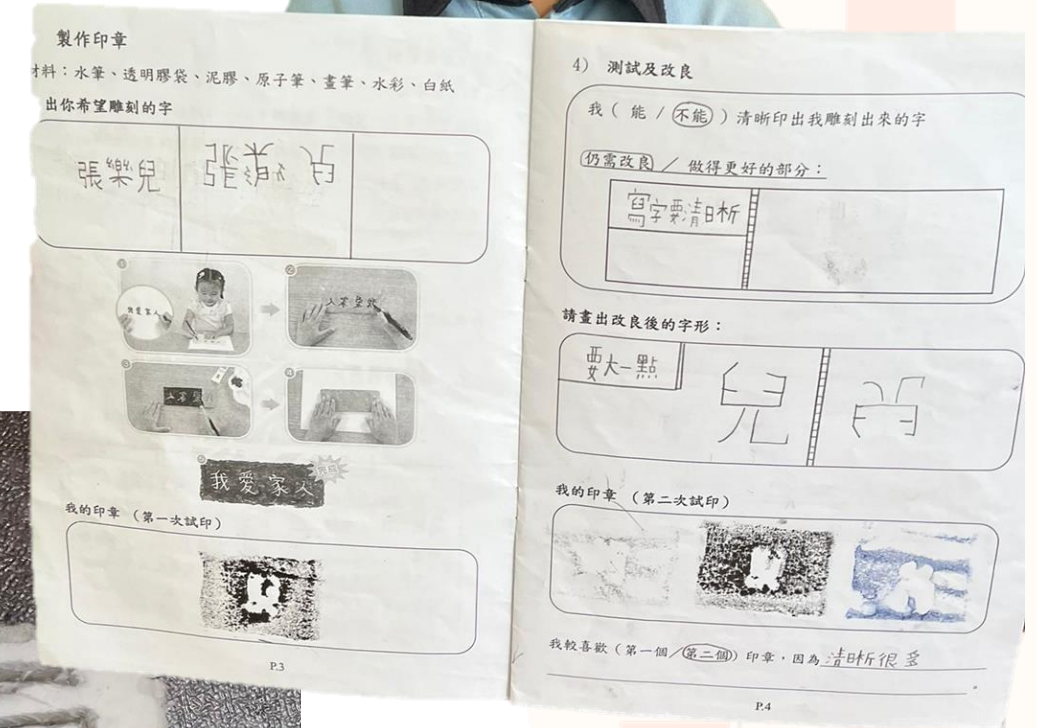 製作印章
材料：水筆、透明膠袋、泥膠、原子筆、畫筆、水彩、白紙
出你希望雕刻的字
張樂兒
①
②
我愛家人
③
④
⑤
我愛家人
我的印章 （第一次試印）
P.3
4) 測試及改良
我（ 能 / 不能 ）清晰印出我雕刻出來的字
仍需改良 / 做得更好的部分：
寫字要清晰
請畫出改良後的字形：
要大一點
兒
我的印章 （第二次試印）
我較喜歡（第一個/第二個）印章，因為清晰很多
P.4